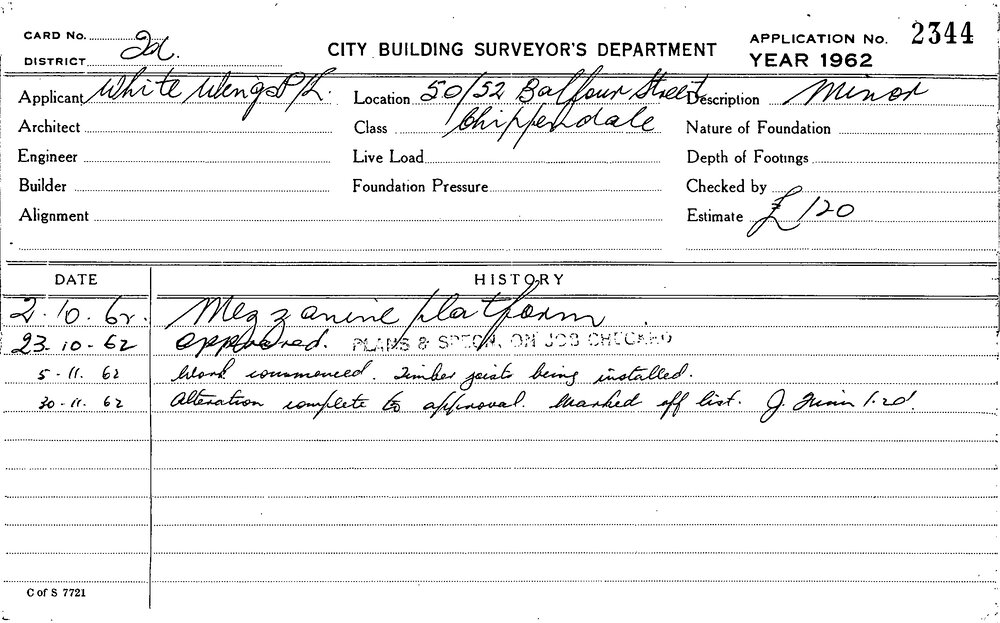 CARD No.
CITY BUILDING SURVEYOR'S DEPARTMENT
APPLICATION No. 2344
DISTRICT 2d.
YEAR 1962
Applicant White Wings P/L.
Location 50/52 Balfour Street
Description Minor
Architect
Class Chippendale
Nature of Foundation
Engineer
Live Load
Depth of Footings
Builder
Foundation Pressure
Checked by
Alignment
Estimate £120
DATE
HISTORY
2.10.62. Mezzanine platform
23.10-62 approved. PLANS & SPECN. ON JOB CHECKED
5-11.62 Work commenced. Timber joists being installed.
30-11.62 Alteration complete to approval. Marked off list. J.
C of S 7721